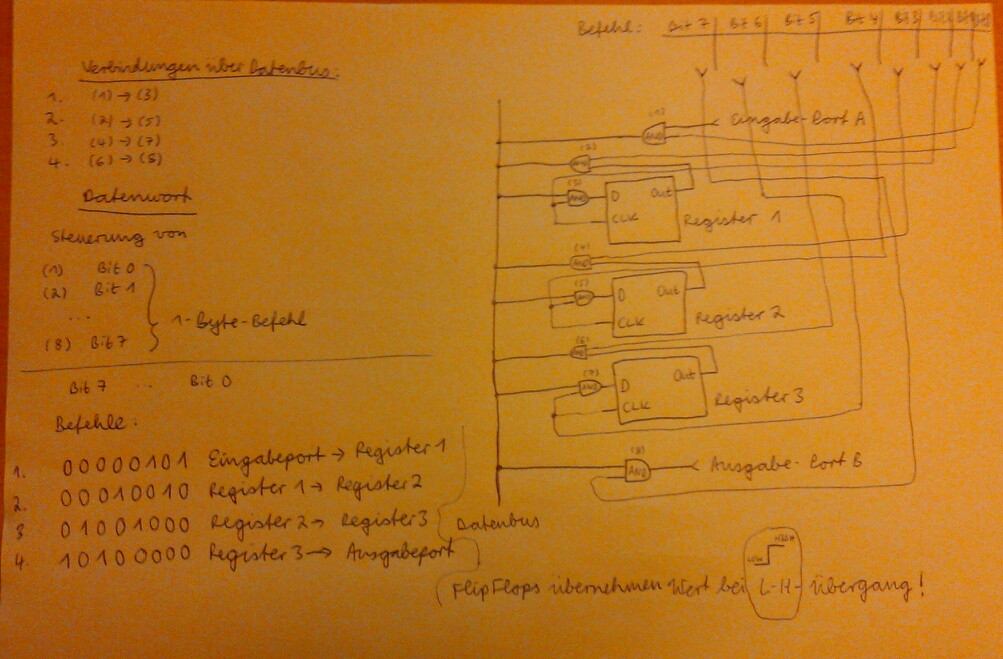 Befehl: Bit 7 Bit 6 Bit 5 Bit 4 Bit 3
Verbindungen über Datenbus:
1. (1) → (3)
2. (2) → (5)
3. (4) → (7)
4. (6) → (8)
Datenwort
Steuerung von
(1) Bit 0
(2) Bit 1
...
(8) Bit 7
1-Byte-Befehl
Bit 7 ... Bit 0
Befehle:
1. 00000101 Eingabeport → Register 1
2. 00010010 Register 1 → Register 2
3 01001000 Register 2 → Register 3
4. 10100000 Register 3 → Ausgabeport
Datenbus
FlipFlops übernehmen Wert bei L-H-Übergang!
LOW HIGH
(1)
AND
Eingabe-Port A
(2)
AND
(3)
AND
D Out
CLK
Register 1
(4)
AND
(5)
AND
D Out
CLK
Register 2
(6)
AND
(7)
AND
D Out
CLK
Register 3
(8)
AND
Ausgabe-Port B